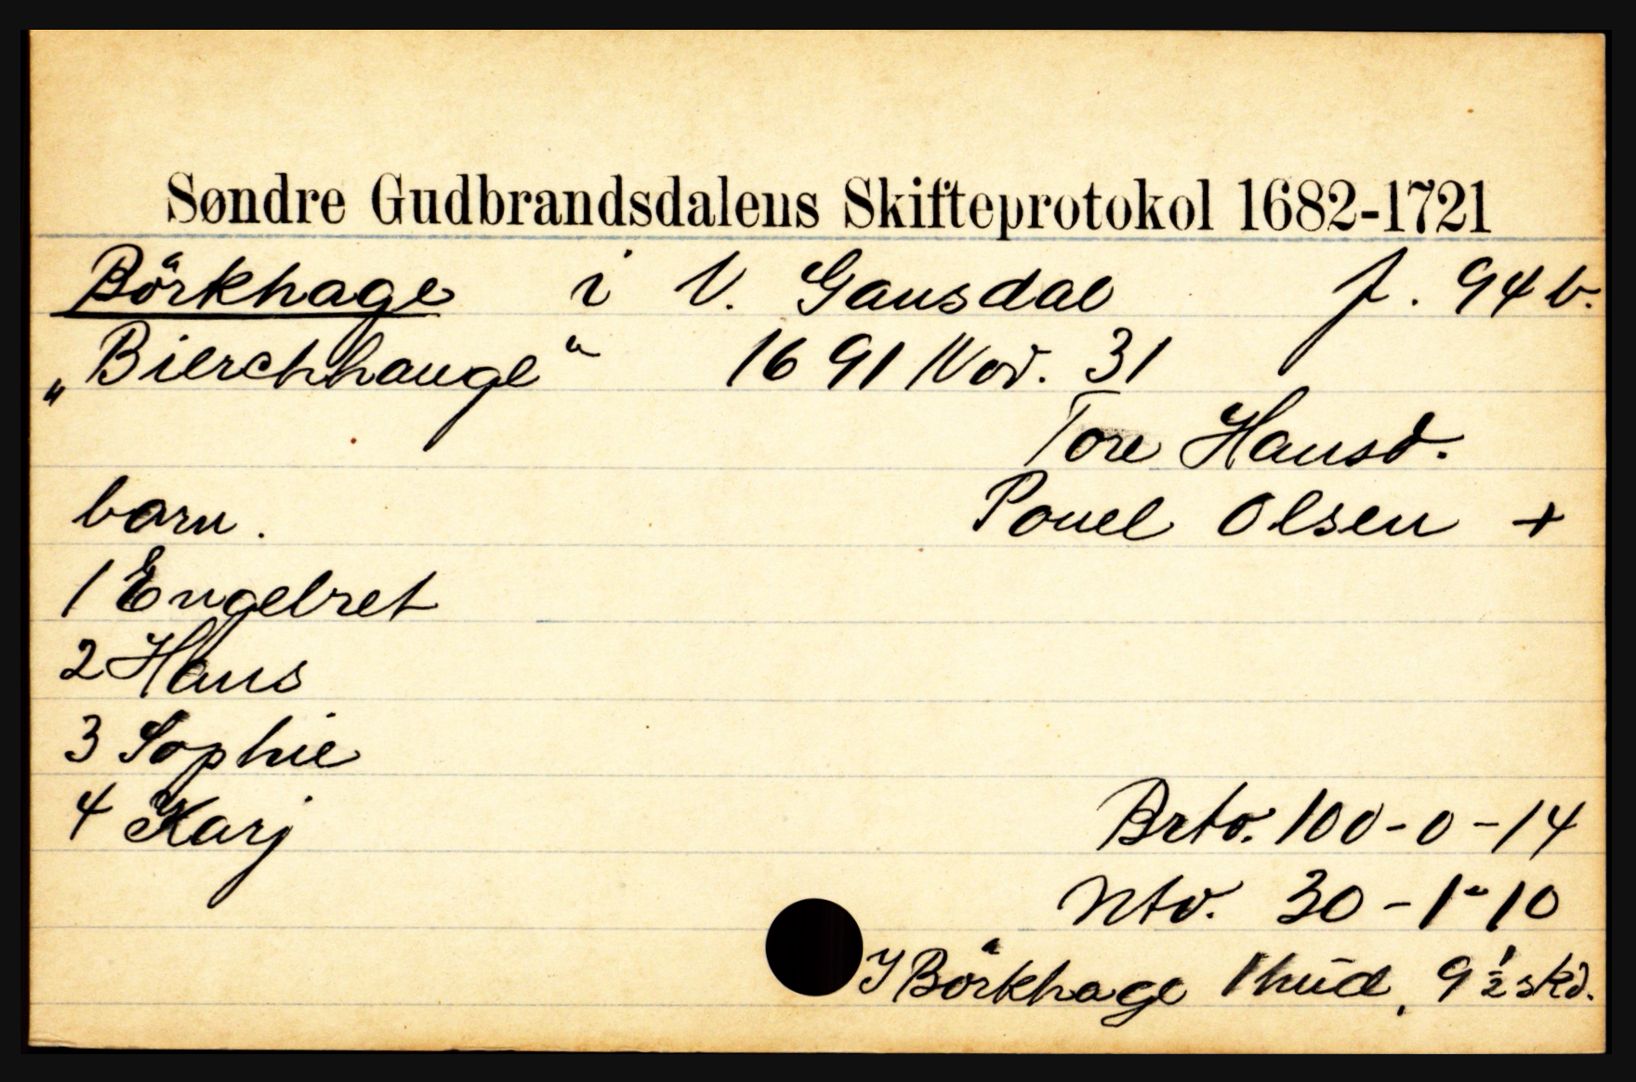 Søndre Gudbrandsdalens Skifteprotokol 1682-1721
Börkhage i V. Gausdal f. 94 b.
„Bierchhauge“ 1691 Nov. 31
Tore Hansd.
barn. Pouel Olsen +
1 Engelret
2 Hans
3 Sophie
4 Karj Brto. 100-0-14
Nto. 30-1-10
I Börkhage 1 hud, 9 1/2 skd.